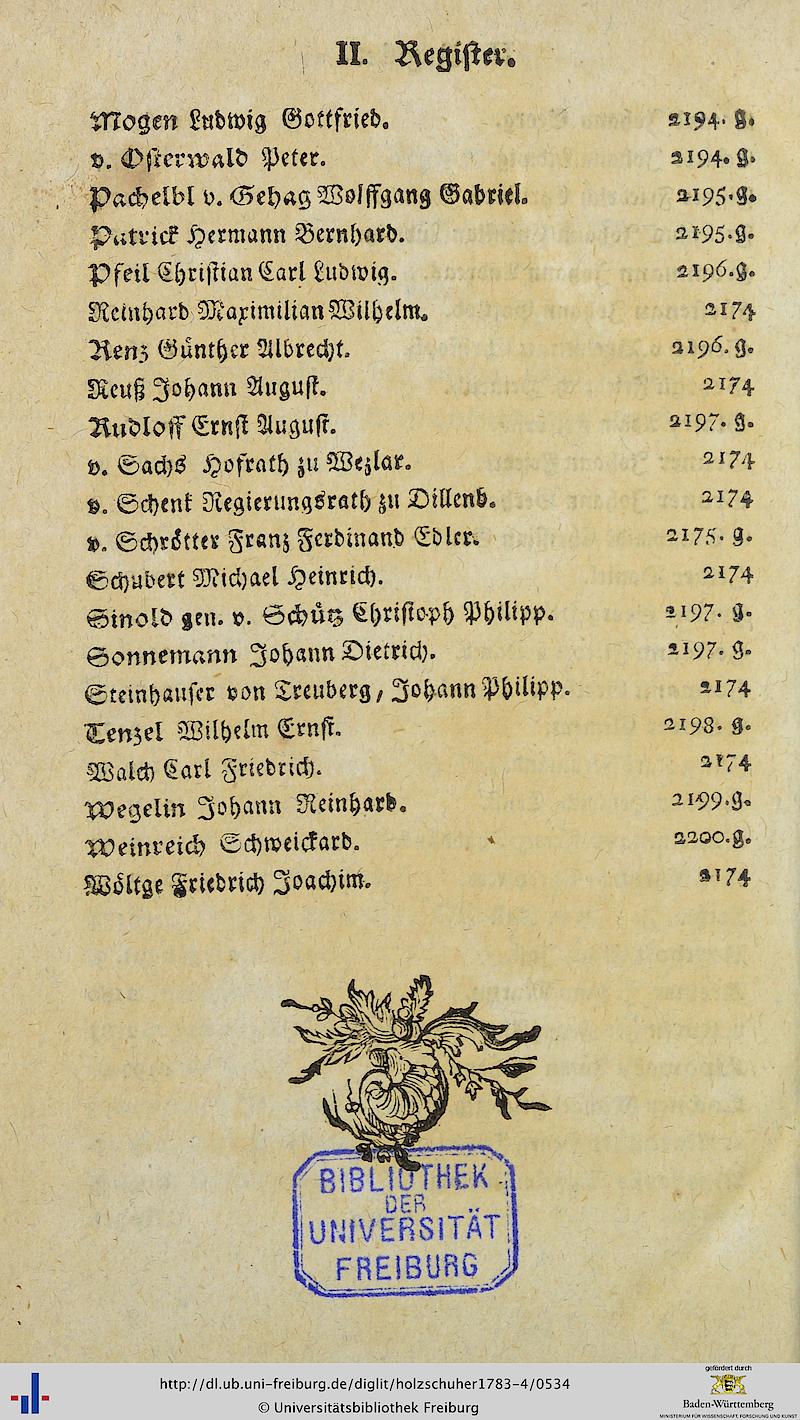 II. Register.
Mogen Ludwig Gottfried. 2194. g.
v. Osterwald Peter. 2194. g.
Pachelbl v. Gehag Wolffgang Gabriel. 2195. g.
Patrick Hermann Bernhard. 2195. g.
Pfeil Christian Carl Ludwig. 2196. g.
Reinhard Maximilian Wilhelm. 2174
Renz Günther Albrecht. 2196. g.
Reuß Johann August. 2174
Rudloff Ernst August. 2197. g.
v. Sachs Hofrath zu Wezlar. 2174
v. Schenk Regierungsrath zu Dillenb. 2174
v. Schrötter Franz Ferdinand Edler. 2175. g.
Schubert Michael Heinrich. 2174
Sinold gen. v. Schütz Christoph Philipp. 2197. g.
Sonnemann Johann Dietrich. 2197. g.
Steinhauser von Treuberg, Johann Philipp. 2174
Tenzel Wilhelm Ernst. 2198. g.
Walch Carl Friedrich. 2174
Wegelin Johann Reinhard. 2199. g.
Weinreich Schweickard. 2200. g.
Wöltge Friedrich Joachim. 2174
BIBLIOTHEK
DER
UNIVERSITÄT
FREIBURG
http://dl.ub.uni-freiburg.de/diglit/holzschuher1783-4/0534
© Universitätsbibliothek Freiburg
gefördert durch
Baden-Württemberg
MINISTERIUM FÜR WISSENSCHAFT, FORSCHUNG UND KUNST